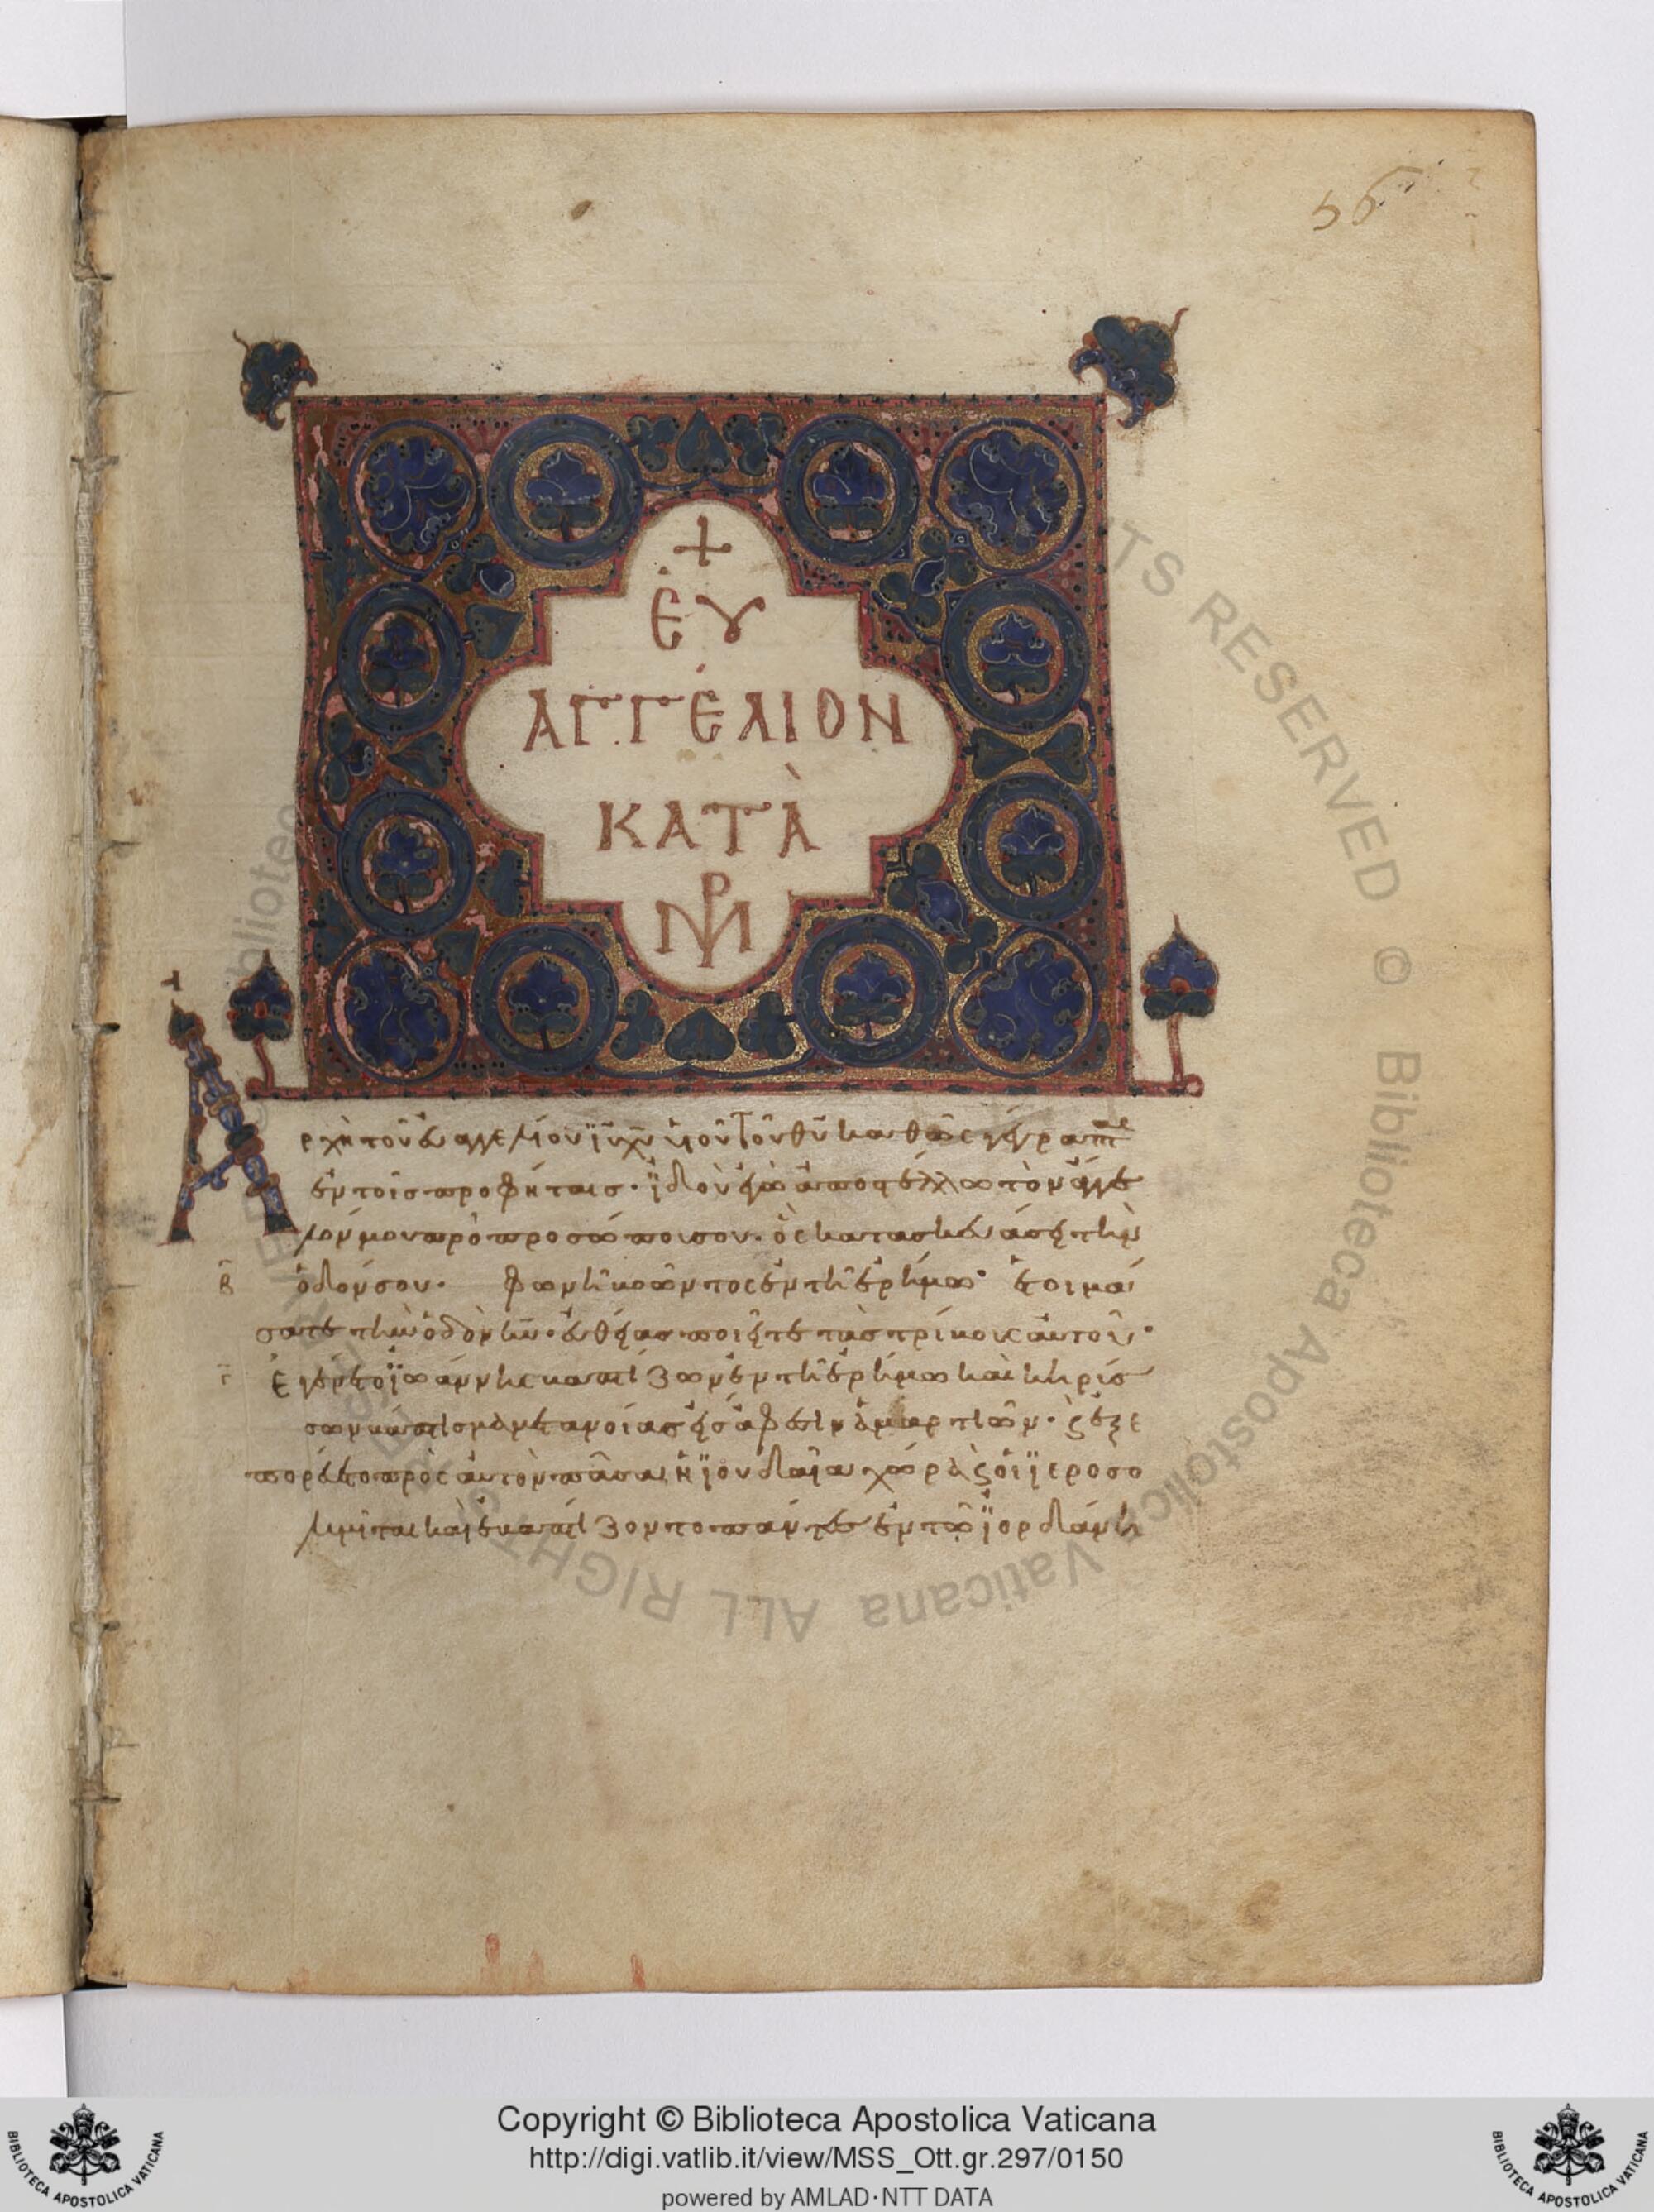 56
+
ἘΥ
ΑΓΓΈΛΙΟΝ
ΚΑΤᾺ
ΜΡ
Ἀρχὴ τοῦ εὐαγγελίου ϊῦ χῦ υἱοῦ τοῦ θῦ καθὼς γέγραπται
ἐν τοῖς προφήταις· ϊδοὺ ἐγὼ ἀποστέλλω τὸν ἄγγε
λόν μου πρὸ προσώπου σου· ὃς κατασκευάσει τὴν
β ὁδόν σου· φωνὴ βοῶντος ἐν τῆ ἐρήμω· ἑτοιμά
σατε τὴν ὁδὸν κῦ· εὐθείας ποιεῖτε τὰς τρίβους αὐτοῦ·
γ Ἐγένετο ϊωάννης βαπτίζων ἐν τῆ ἐρήμω καὶ κηρύσ
σων βάπτισμα μετανοίας εἰς ἄφεσιν ἁμαρτιῶν· ϗ ἐξε
πορεύετο πρὸς αὐτὸν πᾶσα ἡ ϊουδαία χώρα ϗ οἱ ϊεροσο
λυμῖται καὶ ἐβαπτίζοντο πάντες ἐν τῶ ϊορδάνη
Biblioteca Apostolica Vaticana ALL RIGHTS RESERVED ©
Copyright © Biblioteca Apostolica Vaticana
http://digi.vatlib.it/view/MSS_Ott.gr.297/0150
powered by AMLAD·NTT DATA
BIBLIOTECA APOSTOLICA VATICANA
BIBLIOTECA APOSTOLICA VATICANA